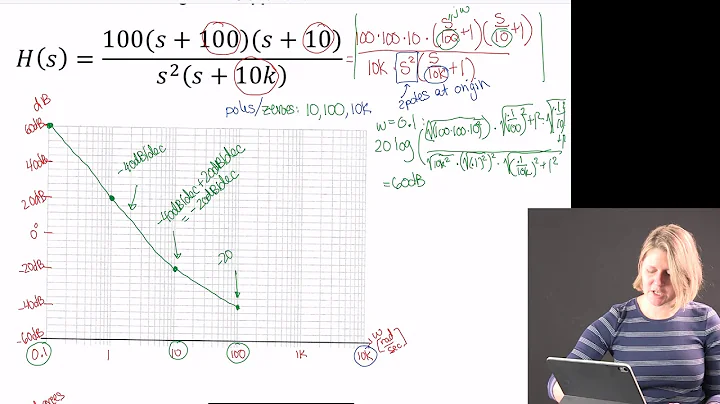 H(s) = 100(s + 100)(s + 10) / s²(s + 10k) = | 100·100·10·(s/100+1)(s/10+1) / 10k s²(s/10k+1) |
jω
2 poles at origin
poles/zeroes: 10, 100, 10k
ω=0.1:
20 log
=60dB
dB
60dB
40dB
20dB
0°
-20dB
-40dB
-60dB
-40dB/dec
-40dB/dec+20dB/dec
= -20dB/dec
-20
0.1 1 10 100 1K 10K
ω
[rad/sec]